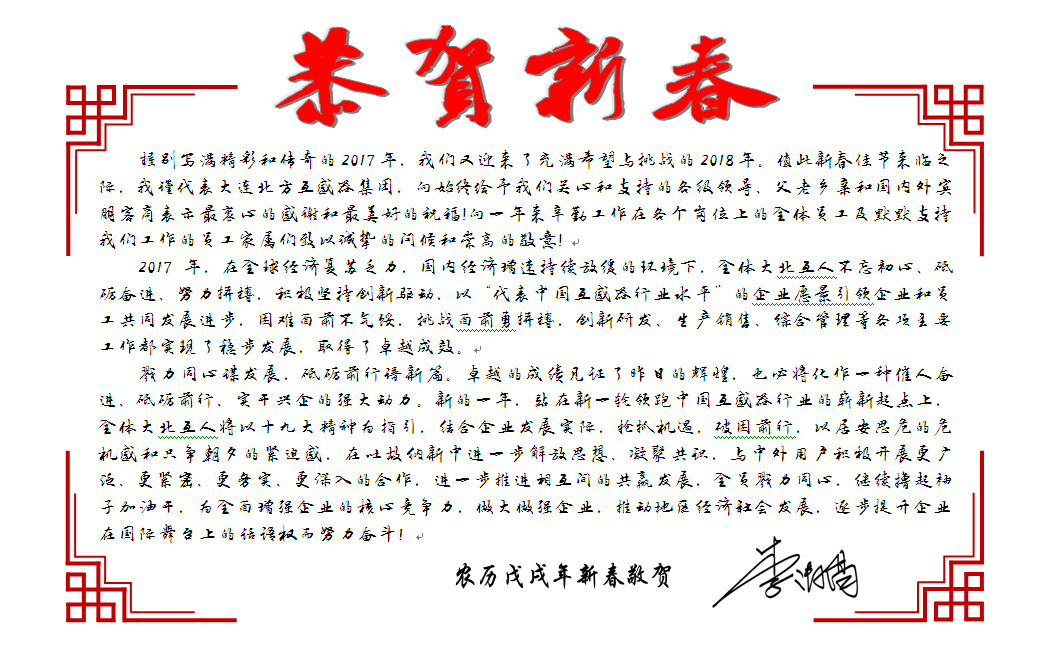 恭贺新春
挥别写满精彩和传奇的2017年，我们又迎来了充满希望与挑战的2018年。值此新春佳节来临之
际，我谨代表大连北方互感器集团，向始终给予我们关心和支持的各级领导、父老乡亲和国内外宾
朋客商表示最衷心的感谢和最美好的祝福!向一年来辛勤工作在各个岗位上的全体员工及默默支持
我们工作的员工家属们致以诚挚的问候和崇高的敬意!
2017 年，在全球经济复苏乏力，国内经济增速持续放缓的环境下，全体大北互人不忘初心、砥
砺奋进、努力拼搏，积极坚持创新驱动，以“代表中国互感器行业水平”的企业愿景引领企业和员
工共同发展进步，困难面前不气馁，挑战面前勇拼搏，创新研发、生产销售、综合管理等各项主要
工作都实现了稳步发展，取得了卓越成效。
戮力同心谋发展，砥砺前行谱新篇。卓越的成绩见证了昨日的辉煌，也必将化作一种催人奋
进、砥砺前行、实干兴企的强大动力。新的一年，站在新一轮领跑中国互感器行业的崭新起点上，
全体大北互人将以十九大精神为指引，结合企业发展实际，抢抓机遇，破困前行，以居安思危的危
机感和只争朝夕的紧迫感，在吐故纳新中进一步解放思想、凝聚共识，与中外用户积极开展更广
泛、更紧密、更务实、更深入的合作，进一步推进相互间的共赢发展，全员戮力同心，继续撸起袖
子加油干，为全面增强企业的核心竞争力，做大做强企业，推动地区经济社会发展，逐步提升企业
在国际舞台上的话语权而努力奋斗!
农历戊戌年新春敬贺